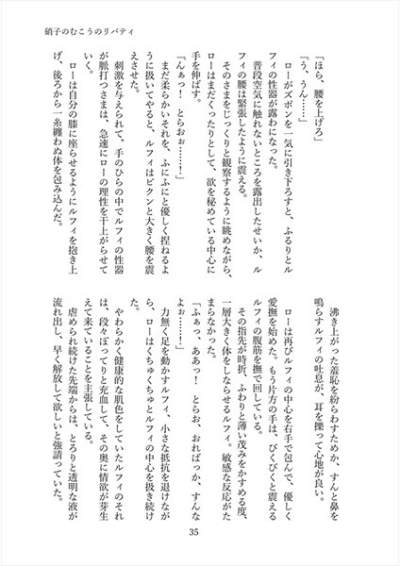 硝子のむこうのリバティ
「ほら、腰を上げろ」
「う、うん……」
ローがズボンを一気に引き下ろすと、ふるりとル
フィの性器が露わになった。
普段空気に触れないところを露出したせいか、ル
フィの腰は緊張したように震える。
そのさまをじっくりと観察するように眺めながら、
ローはまだくったりとして、欲を秘めている中心に
手を伸ばす。
「んぁっ！　とらおぉ……！」
まだ柔らかいそれを、ふにふにと優しく捏ねるよ
うに扱いてやると、ルフィはビクンと大きく腰を震
えさせた。
刺激を与えられて、手のひらの中でルフィの性器
が脈打つさまは、急速にローの理性を干上がらせて
いく。
ローは自分の膝に座らせるようにルフィを抱き上
げ、後ろから一糸纏わぬ体を包み込んだ。
沸き上がった羞恥を紛らわすためか、すんと鼻を
鳴らすルフィの吐息が、耳を擽って心地が良い。
ローは再びルフィの中心を右手で包んで、優しく
愛撫を始めた。もう片方の手は、びくびくと震える
ルフィの腹筋を撫で回している。
その指先が時折、ふわりと薄い茂みをかすめる度、
一層大きく体をしならせるルフィ。敏感な反応がた
まらなかった。
「ふぁっ、ああっ！　とらお、おればっか、すんな
よぉ……！」
力無く足を動かすルフィ、小さな抵抗を退けなが
ら、ローはくちゅくちゅとルフィの中心を扱き続け
た。
やわらかく健康的な肌色をしていたルフィのそれ
は、段々ぽってりと充血して、その奥に情欲が芽生
えて来ていることを主張している。
虐められ続けた先端からは、とろりと透明な液が
流れ出し、早く解放して欲しいと強請っていた。
35